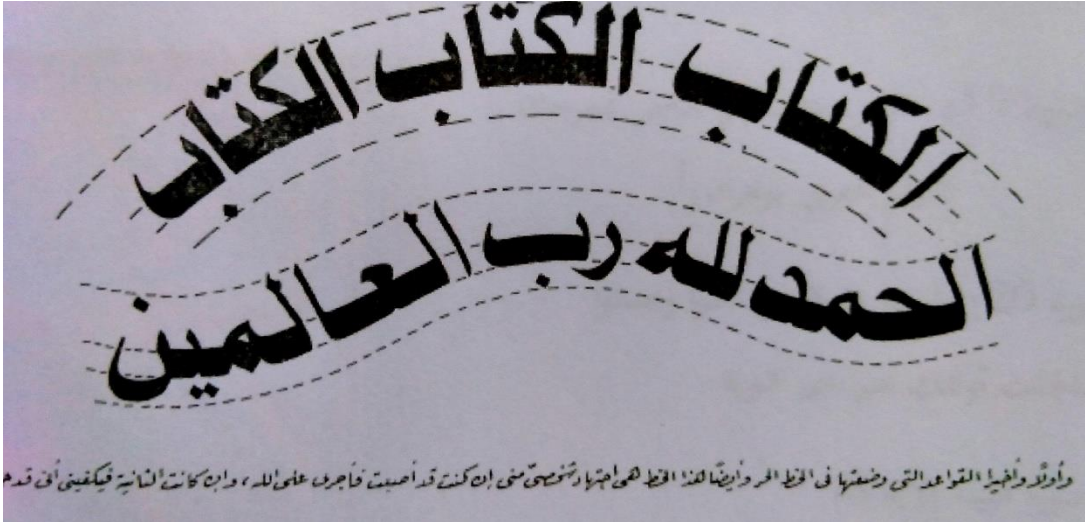 الكتاب الكتاب الكتاب
الحمد لله رب العالمين
وأولاً وأخيراً القواعد التى وضعتها فى الخط الحر وأيضاً هذا الخط هى اجتهاد شخصىّ منى إن كنت قد أصبت فأجرى على الله، وإن كانت الثانية فيكفينى أنى قد